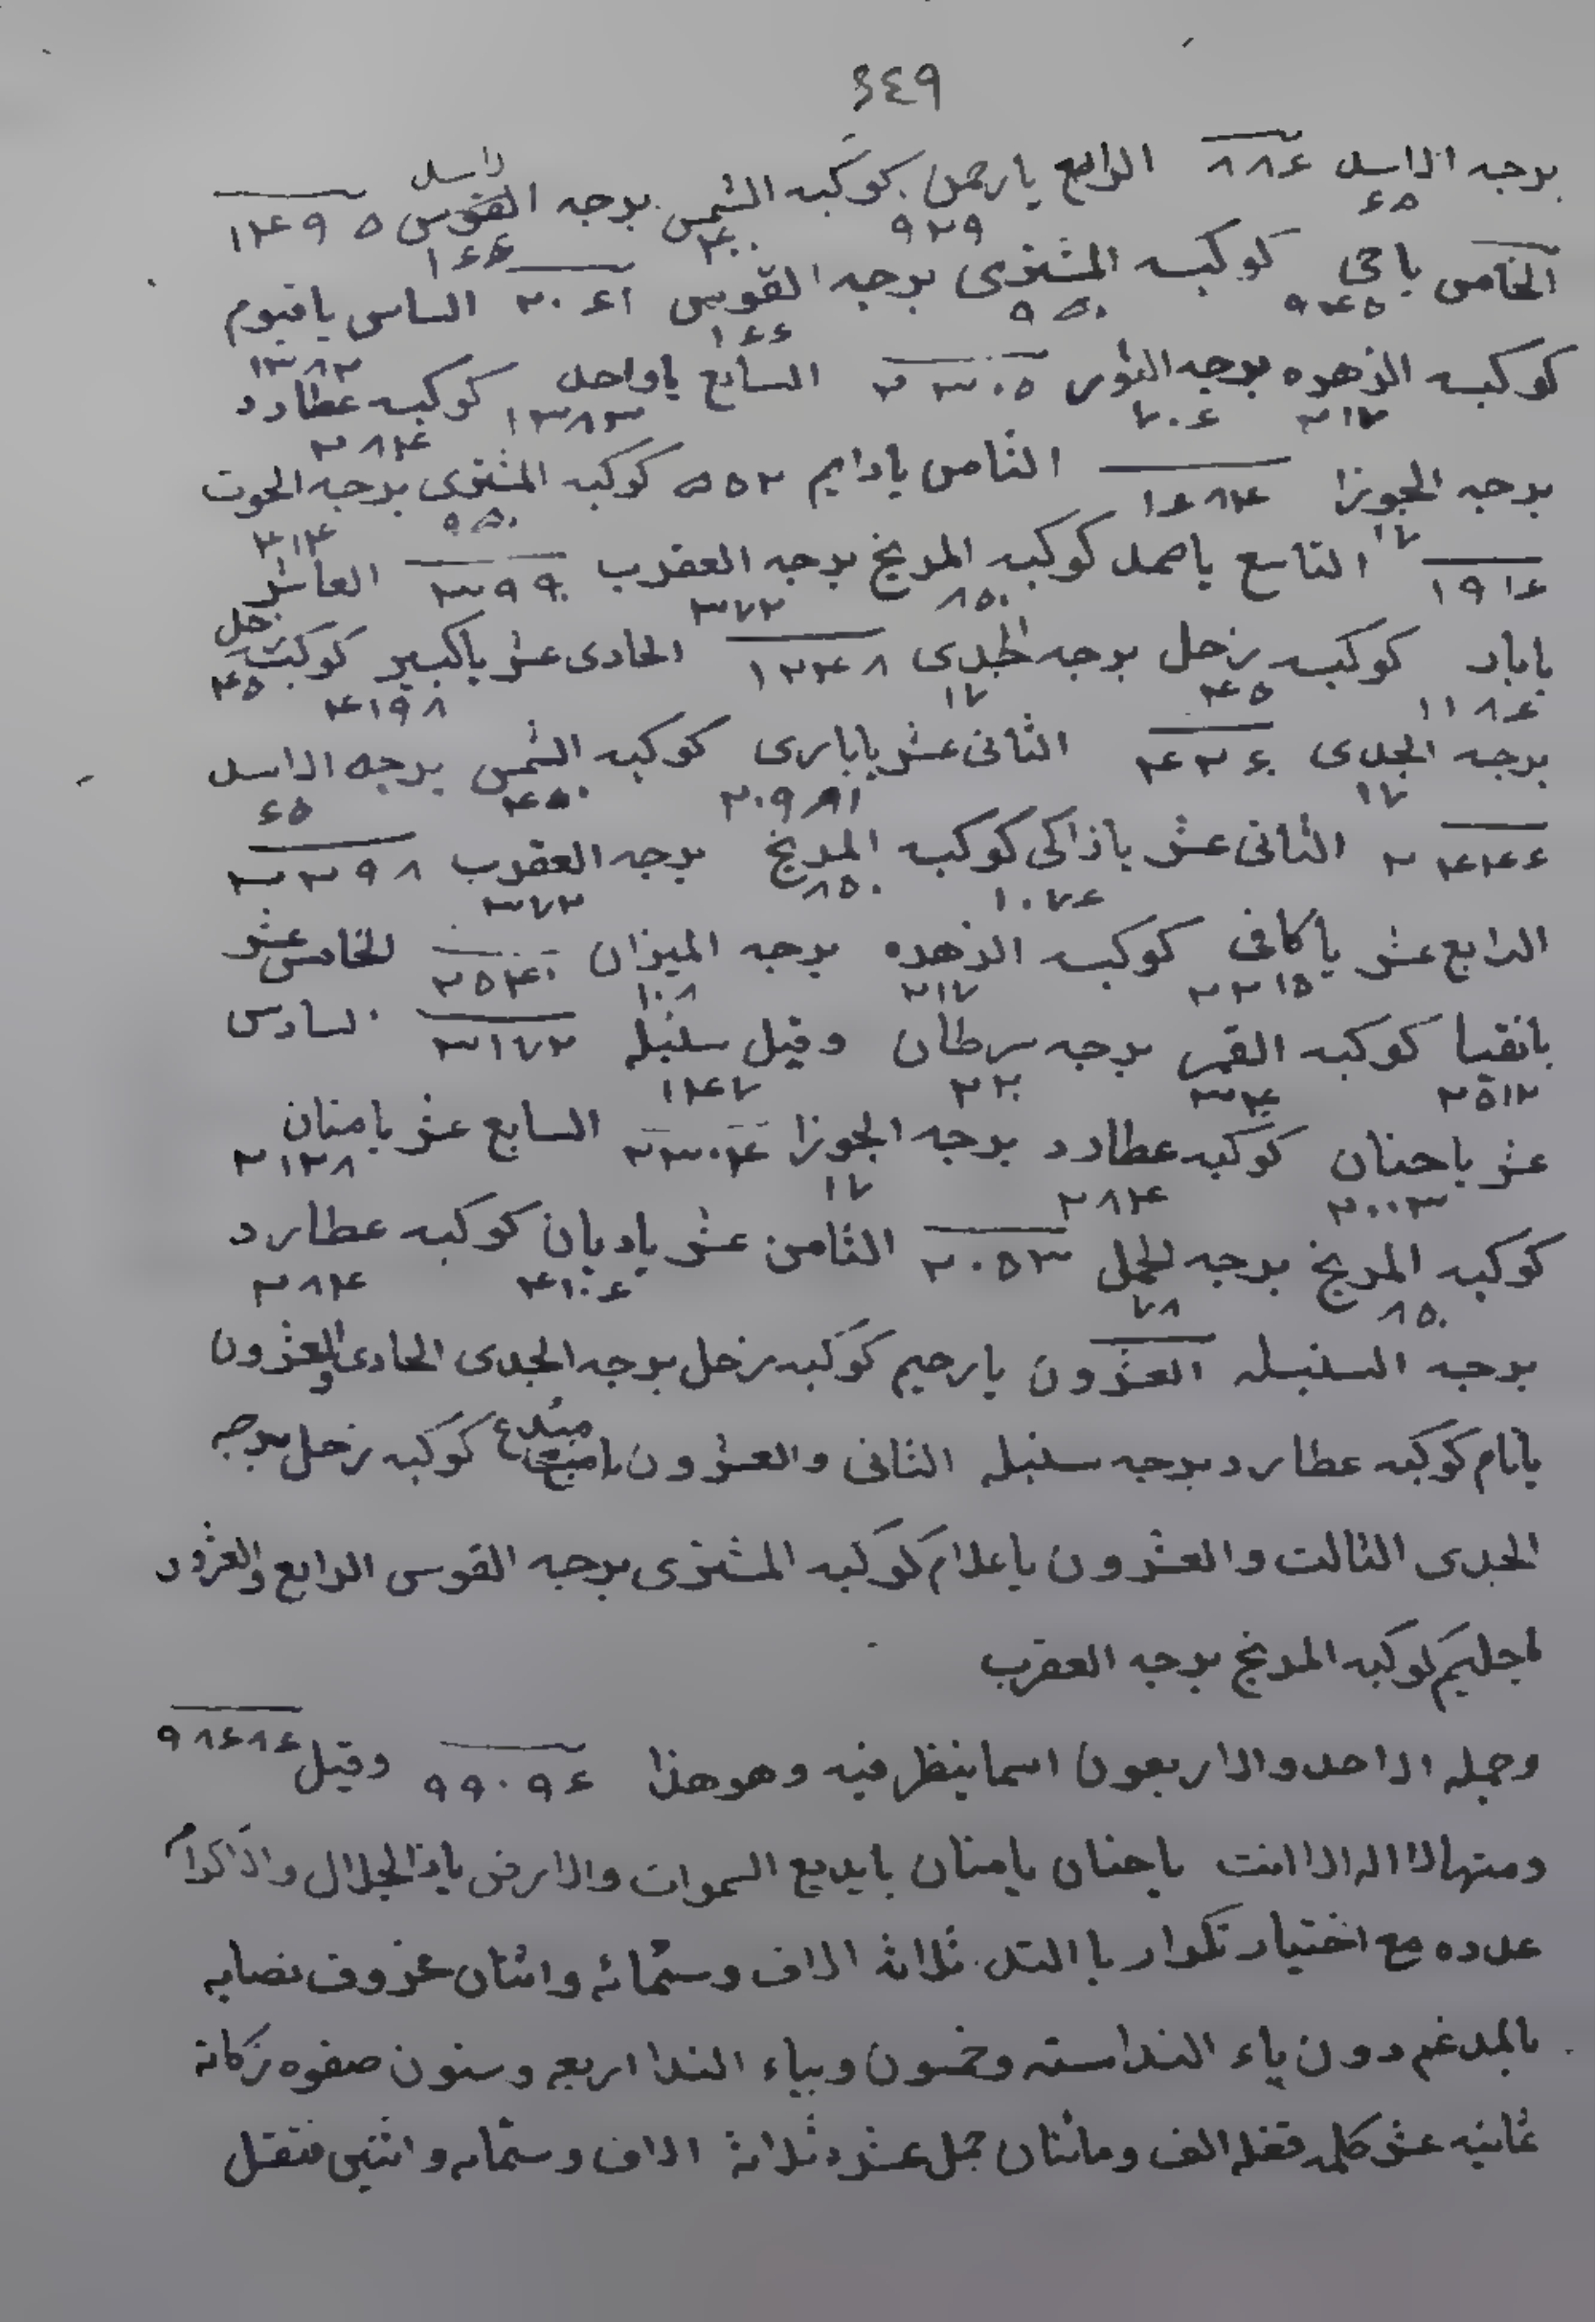 ٣٤٩
برجه الاسد ٨٨٤ الرابع يارحمن كوكبه الشمس برجه القوس الاسد ١٤٩٥
٦٥ ٩٢٩ ٤٠٠ ١٦٦
الخامس ياحي كوكبه المشتري برجه القوس ٢٠٤١ السادس ياقيوم
٩٤٥ ٩٥٠ ١٦٦ ١٣٨٢
كوكبه الزهره برجه الثور ٢٣٠٥ السابع ياواحد كوكبه عطارد
٢١٧ ٧٠٦ ١٣٨٣ ٢٨٤
برجه الجوزا ١٦٨٤ الثامن يادايم ٥٥٢ كوكبه المشتري برجه الحوت
١٧ ٩٥٠ ٤١٤
١٩١٦ التاسع ياصمد كوكبه المريخ برجه العقرب ٣٩٩٠ العاشر
٨٥٠ ٣٧٢
يابار كوكبه زحل برجه الجدى ١٢٤٨ الحادى عشر ياكبير كوكبه زحل
١١٨٦ ٤٥ ١٧ ٤١٩٨ ٤٥
برجه الجدى ٤٢٦٠ الثانى عشر يابارى كوكبه الشمس برجه الاسد
١٧ ٢٠٩٨١ ٤٥٠ ٦٥
٢٤٤٦ الثانى عشر ياذاكى كوكبه المريخ برجه العقرب ٢٣٩٨
١٠٧٦ ٨٥٠ ٣٧٢
الرابع عشر ياكافي كوكبه الزهره برجه الميزان ٢٥٤٠ الخامس عشر
٢٢١٥ ٢١٧ ١٠٨
يانقيا كوكبه القمر برجه سرطان وقيل سنبله ٣١٧٢ السادس
٢٥١٢ ٣٤٠ ٣٢٠ ١٤٧
عشر ياحنان كوكبه عطارد برجه الجوزا ٢٣٠٤ السابع عشر يامنان
٢٠٠٣ ٢٨٤ ١٧ ٢١٢٨
كوكبه المريخ برجه الحمل ٢٠٥٣ الثامن عشر ياديان كوكبه عطارد
٨٥٠ ٧٨ ٤١٠٦ ٢٨٤
برجه السنبله العشرون يارحيم كوكبه زحل برجه الجدى الحادى والعشرون
ياتام كوكبه عطارد برجه سنبله الثانى والعشرون يامبدع كوكبه زحل برجه
الجدى الثالث والعشرون ياعلام كوكبه المشتري برجه القوس الرابع والعشرون
ياحليم كوكبه المريخ برجه العقرب
وجمله الاحد والاربعون اسما ينظر فيه وهو هذا ٩٩٠٩٤ وقيل ٩٨٤٨٤
ومنها لا اله الا انت ياحنان يامنان يابديع السموات والارض ياذا الجلال والاكرام
عدده مع اختيار تكرار يا التل ثلاثة الاف وستمائه واثنان حروف نصابه
بالمدغم دون ياء الندا سته وخمسون وبياء الندا اربعه وستون صفوه زكاته
ثمانيه عشر كلمه قفله الف ومائتان جمل عشره ثلاثة الاف وستمايه واثنين فتقل